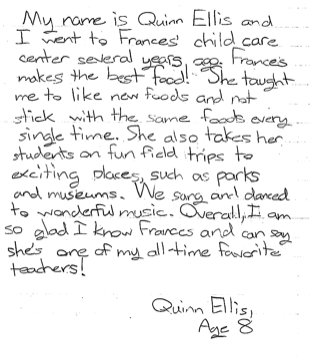 My name is Quinn Ellis and
I went to Frances' child care
center several years ago. Frances
makes the best food! She taught
me to like new foods and not
stick with the same foods every
single time. She also takes her
students on fun field trips to
exciting places, such as parks
and museums. We sang and danced
to wonderful music. Overall, I am
so glad I know Frances and can say
she's one of my all-time favorite
teachers!
Quinn Ellis,
Age 8